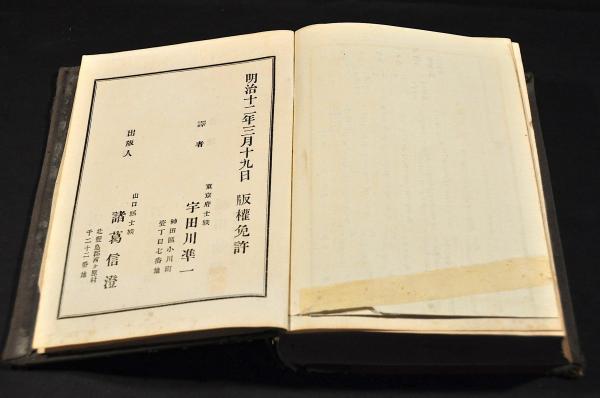 明治十二年三月十九日 版權免許
譯者
東京府士族
宇田川準一
神田區小川町
壹丁目七番地
出版人
山口縣士族
諸葛信澄
北豊島郡西ヶ原村
千二十二番地